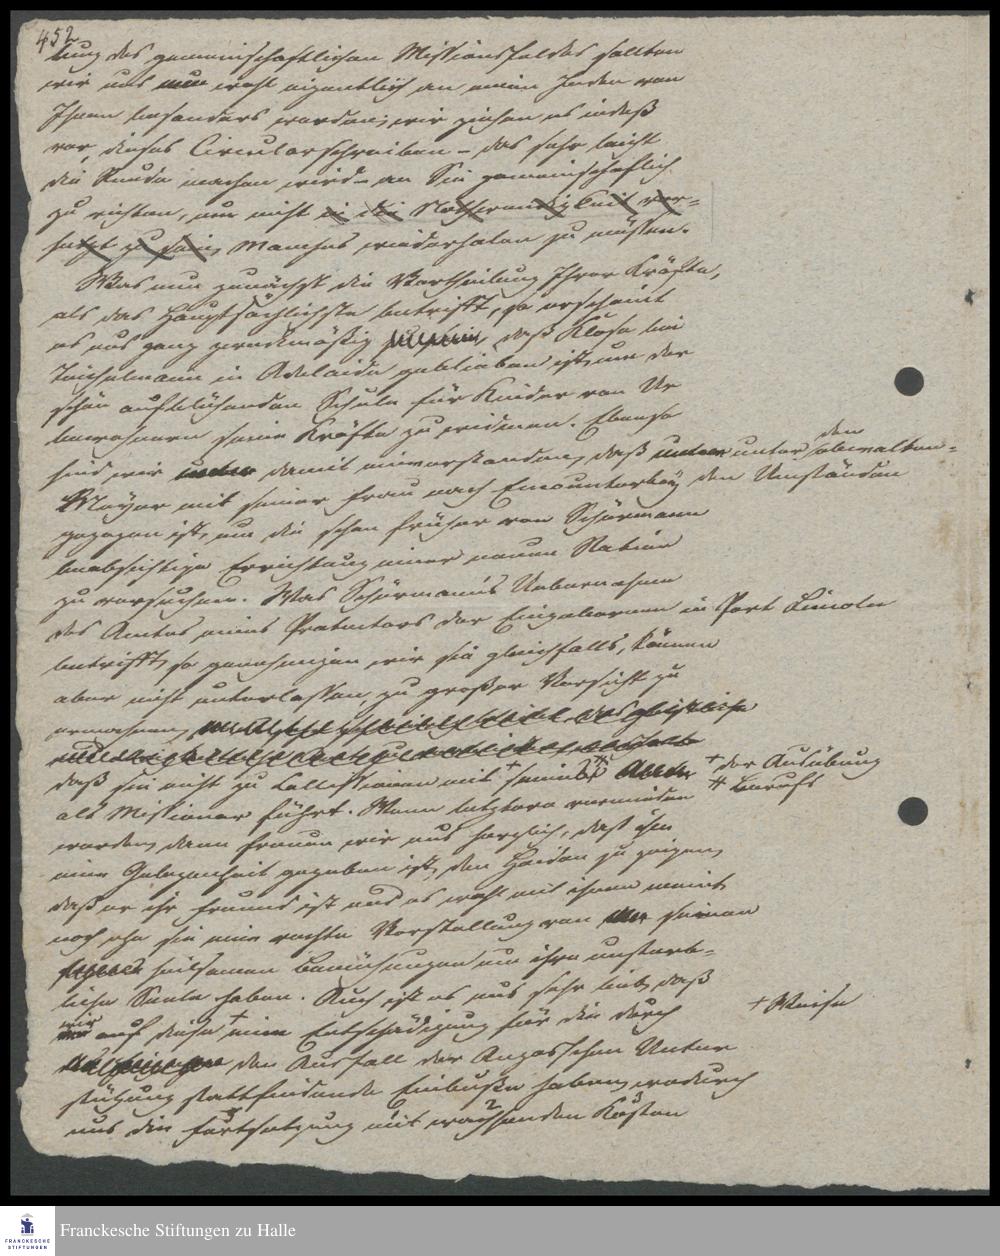 452
tung des gemeinschaftlichen Missionsfeldes sollten
wir uns nun wohl eigentlich an einen Jeden von
Ihnen besonders wenden; wir ziehen es indeß
vor, dieses Circularschreiben – das sehr leicht
die Runde machen wird – an Sie gemeinschaftlich
zu richten, um nicht in die Nothwendigkeit ver-
setzt zu sein, Manches wiederholen zu müssen.
Was nun zunächst die Vertheilung Ihrer Kräfte,
als das Hauptsächlichste betrifft, so erscheint
es uns ganz zweckmäßig daß Klose bei
Teichelmann in Adelaide geblieben ist, um der
schön aufblühenden Schule für Kinder von Ur
bewohnern seine Kräfte zu widmen. Ebenso
sind wir damit einverstanden, daß unter den obwalten-
Meyer mit seiner Frau nach Encounterbay den Umständen
gezogen ist, um die schon früher von Schürmann
beabsichtigte Errichtung einer neuen Station
zu versuchen. Was Schürmann's Uebernahme
des Amtes eines Protectors der Eingebornen in Port Lincoln
betrifft, so genehmigen wir sie gleichfalls, können
aber nicht unterlassen, zu großer Vorsicht zu
ermahnen,
daß sie nicht zu Collissionen mit + seines # + der Ausübung
als Missionar führt. Wenn letztere vermieden # Berufs
werden, dann freuen wir uns herzlich, daß ihm
eine Gelegenheit gegeben ist, den Heiden zu zeigen,
daß er ihr Freund ist und es wohl mit ihnen meint,
noch ehe sie eine rechte Vorstellung von seinen
heilsamen Bemühungen um ihre unsterb-
liche Seele haben. Auch ist es uns sehr lieb, daß
wir auf diese + eine Entschädigung für die durch + Weise
den Ausfall der Angasschen Unter
stützung stattfindende Einbuße haben, wodurch
uns die Fortsetzung mit wachsenden Kosten
Franckesche Stiftungen zu Halle
FRANCKESCHE
STIFTUNGEN